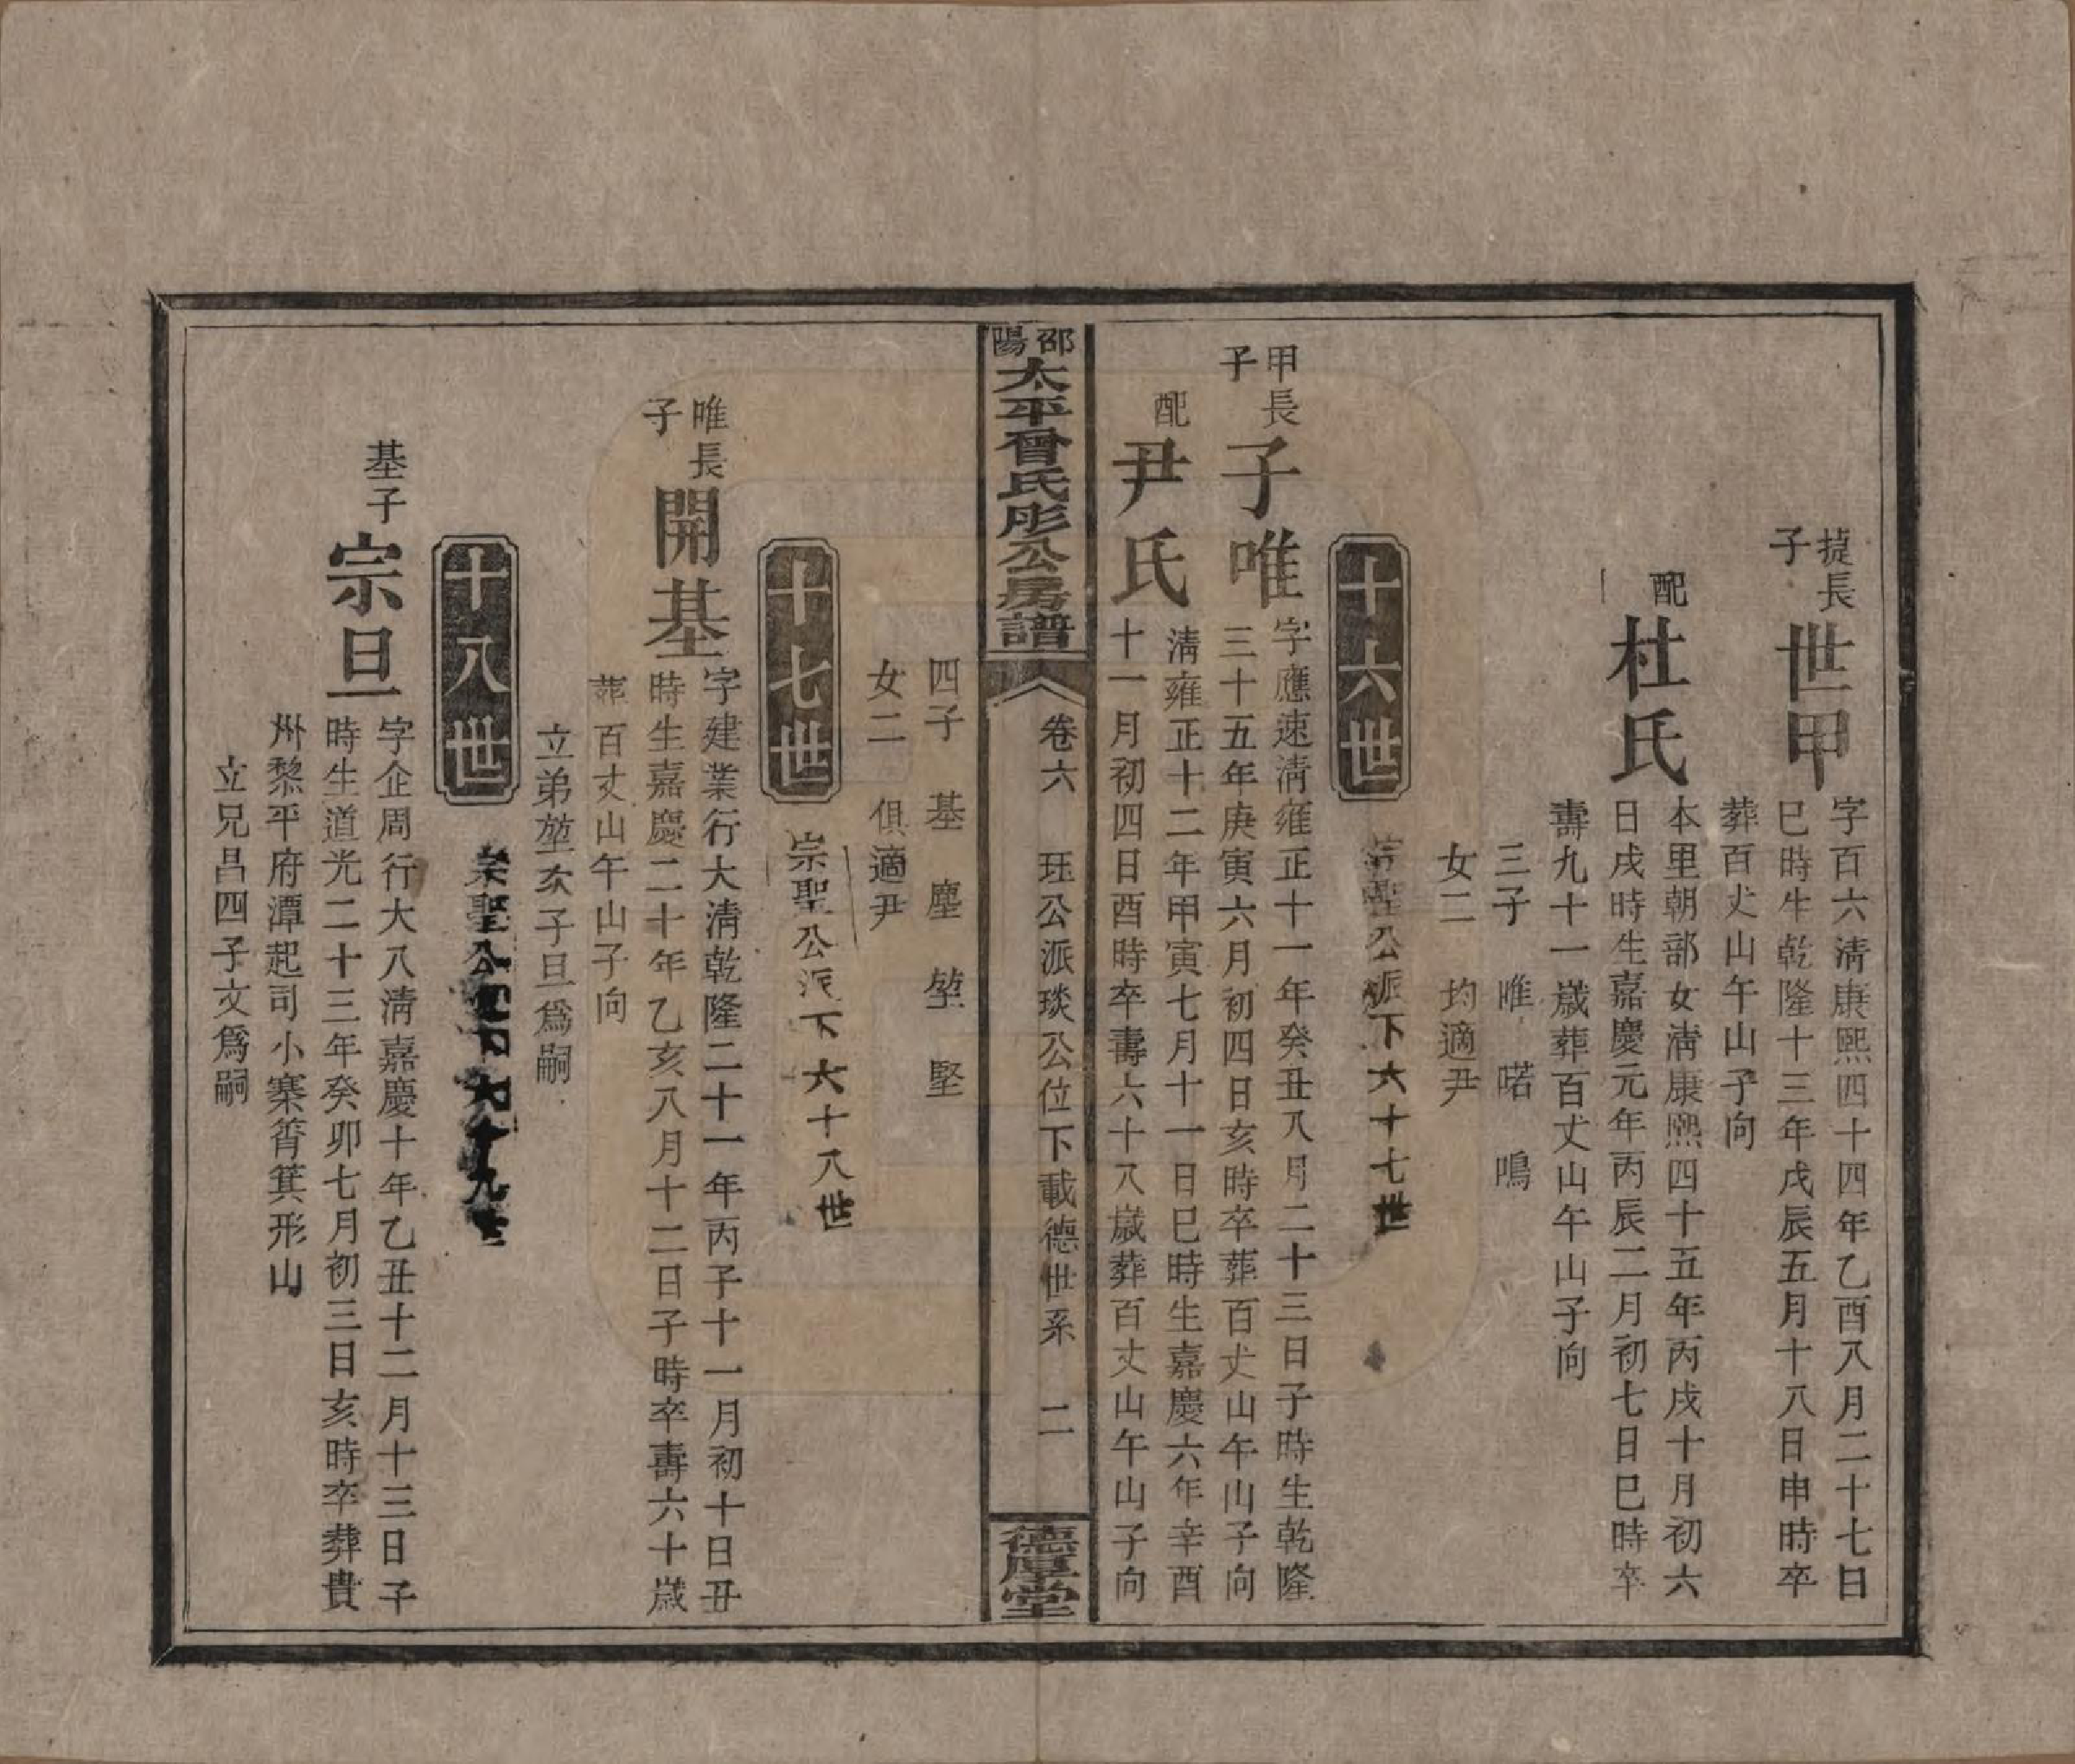 提長子
世甲
字百六淸康熙四十四年乙酉八月二十七日
巳時生乾隆十三年戊辰五月十八日申時卒
葬百丈山午山子向
配
杜氏
本里朝部女淸康熙四十五年丙戌十月初六
日戌時生嘉慶元年丙辰二月初七日巳時卒
壽九十一歲葬百丈山午山子向
三子 唯 喏 鳴
女二 均適尹
十六世
宗聖公派下六十七世
甲長子
子唯
字應速淸雍正十一年癸丑八月二十三日子時生乾隆
三十五年庚寅六月初四日亥時卒葬百丈山午山子向
配
尹氏
淸雍正十二年甲寅七月十一日巳時生嘉慶六年辛酉
十一月初四日酉時卒壽六十八歲葬百丈山午山子向
邵陽
太平曾氏彤公房譜
卷六 珏公派琰公位下載德世系 二
德厚堂
四子 基 塵 堃 堅
女二 俱適尹
十七世
宗聖公派下六十八世
唯長子
開基
字建業行大淸乾隆二十一年丙子十一月初十日丑
時生嘉慶二十年乙亥八月十二日子時卒壽六十歲
葬百丈山午山子向
立弟堃次子旦爲嗣
十八世
宗聖公派下六十九世
基子
宗旦
字企周行大八淸嘉慶十年乙丑十二月十三日子
時生道光二十三年癸卯七月初三日亥時卒葬貴
州黎平府潭起司小寨筲箕形山
立兄昌四子文爲嗣